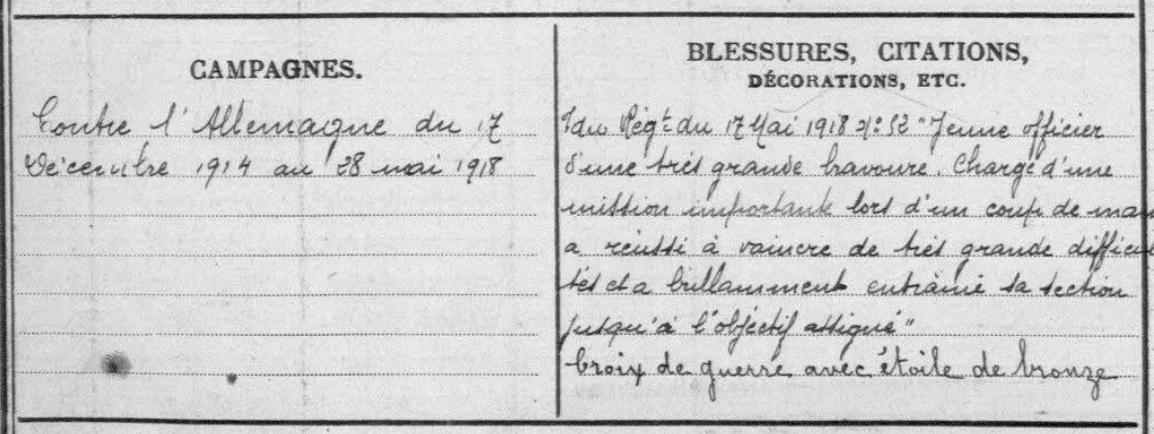 CAMPAGNES.
Contre l'Allemagne du 17
Décembre 1914 au 28 mai 1918
BLESSURES, CITATIONS,
DÉCORATIONS, ETC.
du Régt du 17 Mai 1918 "Jeune officier
d'une très grande bravoure. Chargé d'une
mission importante lors d'un coup de main
a réussi à vaincre de très grande difficul
tés et a brillamment entrainé sa section
jusqu'à l'objectif assigné"
Croix de guerre avec étoile de bronze